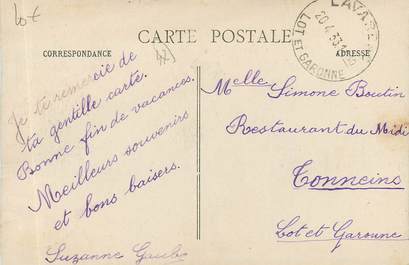 CARTE POSTALE
CORRESPONDANCE
ADRESSE
20-4-33
LOT ET GARONNE
Je te remercie de
ta gentille carte.
Bonne fin de vacances.
Meilleurs souvenirs
et bons baisers.
Suzanne
Melle Simone Boutin
Restaurant du Midi
Tonneins
Lot et Garonne